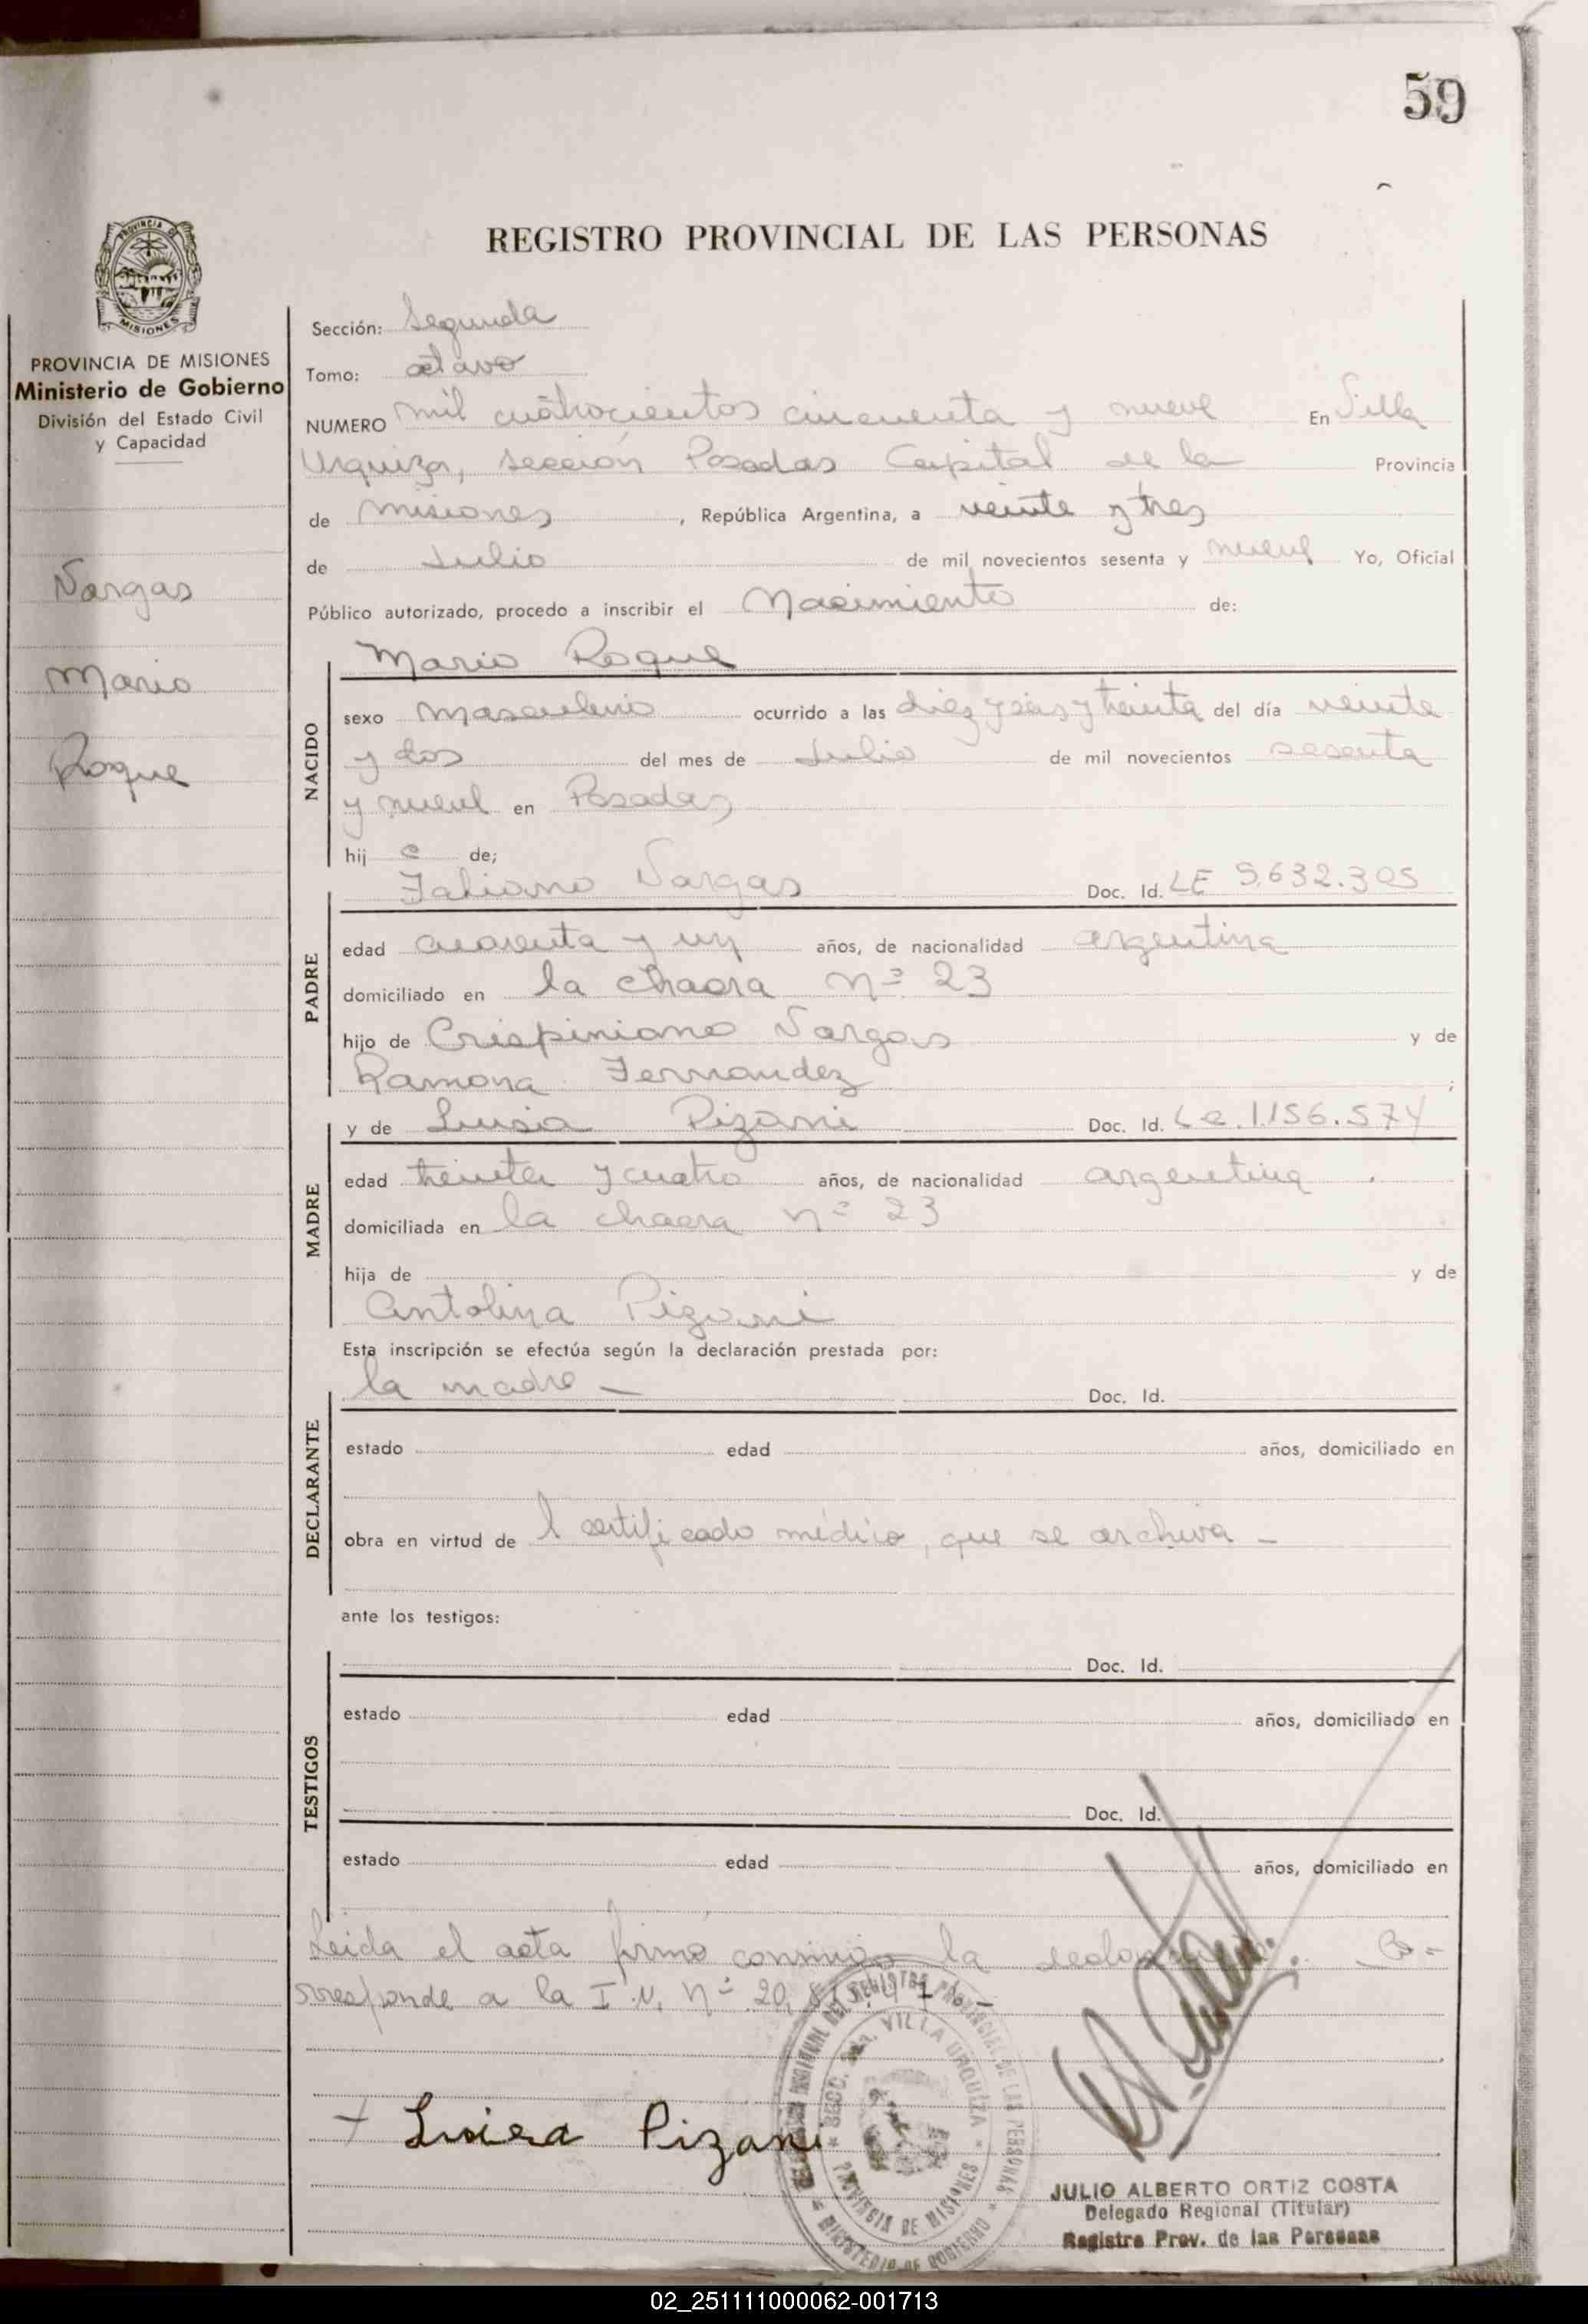 59
PROVINCIA DE
MISIONES
PROVINCIA DE MISIONES
Ministerio de Gobierno
División del Estado Civil
y Capacidad
Vargas
Mario
Roque
REGISTRO PROVINCIAL DE LAS PERSONAS
Sección: Segunda
Tomo: octavo
NUMERO mil cuatrocientos cincuenta y nueve En Villa
Urquiza, sección Posadas Capital de la Provincia
de Misiones, República Argentina, a veinte y tres
de Julio de mil novecientos sesenta y nueve Yo, Oficial
Público autorizado, procedo a inscribir el Nacimiento de:
Mario Roque
NACIDO
sexo Masculino ocurrido a las diez y seis y treinta del día veinte
y dos del mes de Julio de mil novecientos sesenta
y nueve en Posadas
hijo de;
Fabiano Vargas Doc. Id. LE 5.632.305
PADRE
edad cuarenta y un años, de nacionalidad argentina
domiciliado en la chacra nº 23
hijo de Crispiniano Vargas y de
Ramona Fernandez ;
y de Luisa Pizani Doc. Id. Lc. 1.156.574
MADRE
edad treinta y cuatro años, de nacionalidad argentina
domiciliada en la chacra nº 23
hija de y de
Antolina Pizani
Esta inscripción se efectúa según la declaración prestada por:
la madre — Doc. Id.
DECLARANTE
estado edad años, domiciliado en
obra en virtud de l certificado médico, que se archiva —
ante los testigos:
Doc. Id.
TESTIGOS
estado edad años, domiciliado en
Doc. Id.
estado edad años, domiciliado en
Leida el acta firma conmigo la Co=
rresponde a la I.N. nº 20,
+ Luisa Pizani
VILLA URQUIZA
PROVINCIA DE MISIONES
MINISTERIO DE GOBIERNO
JULIO ALBERTO ORTIZ COSTA
Delegado Regional (Titular)
Registro Prov. de las Personas
02_251111000062-001713